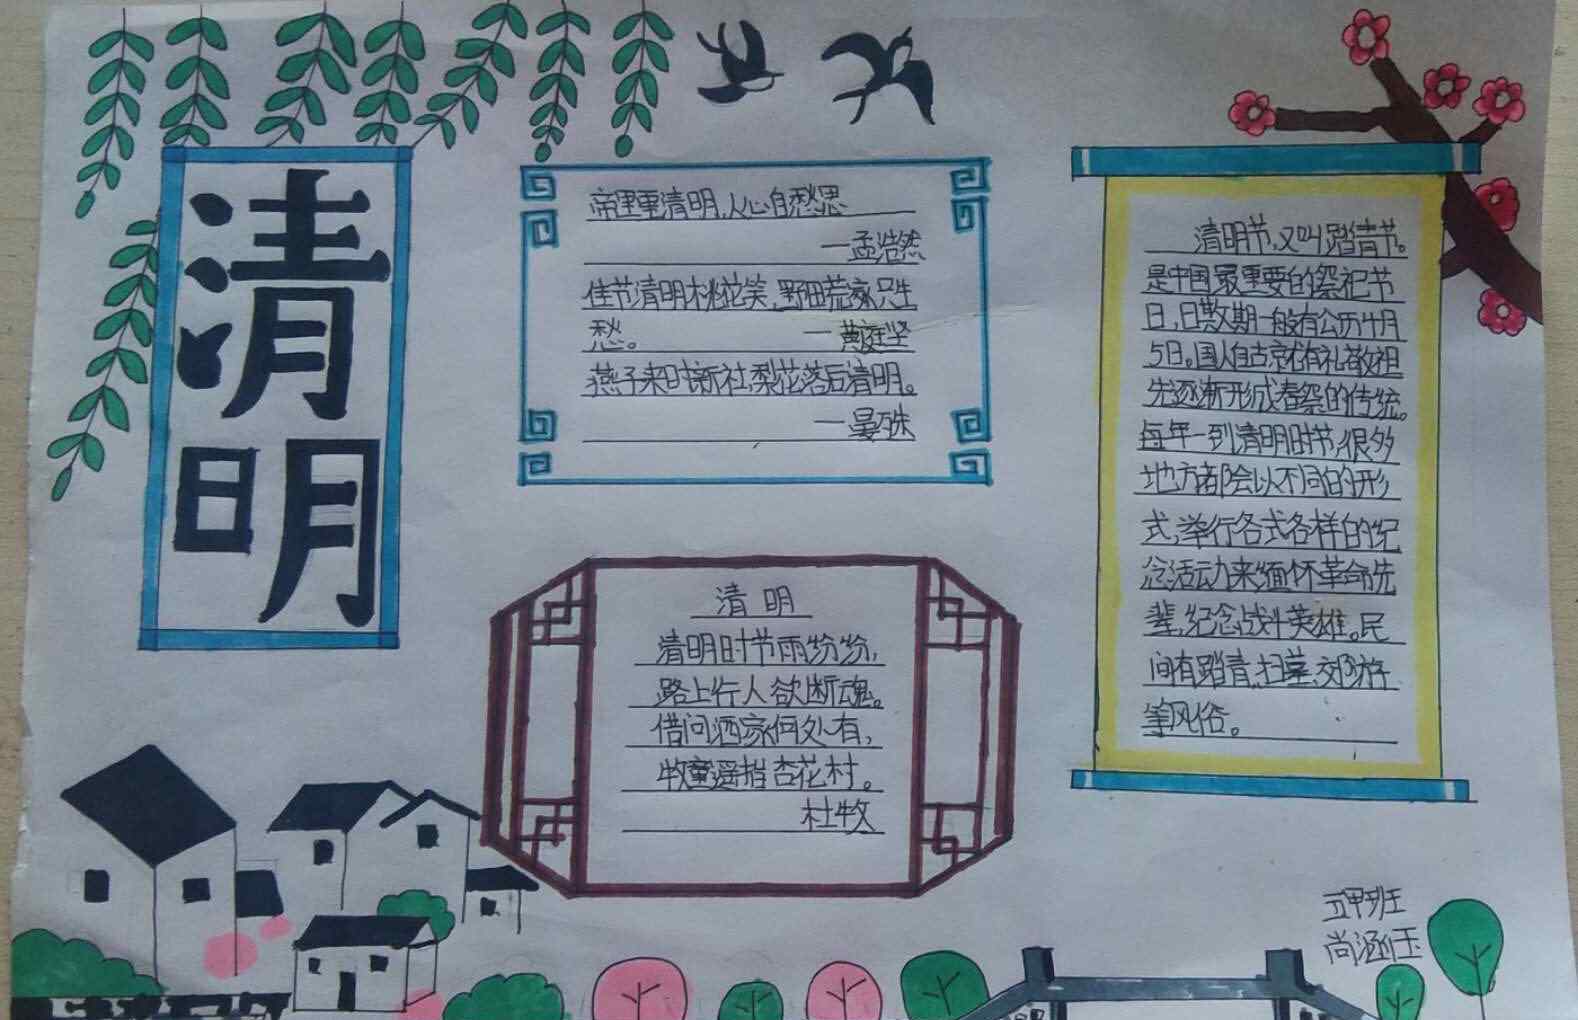 清明
帝里重清明，人心自愁思
—孟浩然
佳节清明桃花笑，野田荒冢只生
愁。 —黄庭坚
燕子来时新社，梨花落后清明。
—晏殊
清明
清明时节雨纷纷，
路上行人欲断魂。
借问酒家何处有，
牧童遥指杏花村。
杜牧
清明节，又叫踏青节。
是中国最重要的祭祀节
日，日期一般有公历4月
5日。国人自古就有礼敬祖
先逐渐形成春祭的传统。
每年一到清明时节，很多
地方都会以不同的形
式，举行各式各样的纪
念活动来缅怀革命先
辈，纪念战斗英雄。民
间有踏青、扫墓、郊游
等风俗。
五甲班
尚涵玉